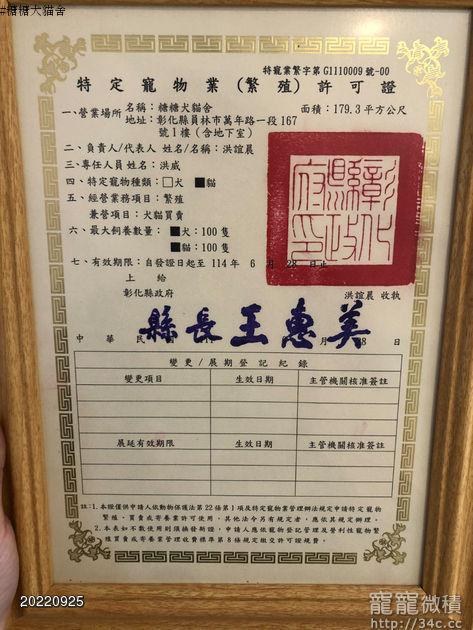 #糖糖犬貓舍
特寵業繁字第G1110009號-00
特定寵物業(繁殖)許可證
一、營業場所 名稱:糖糖犬貓舍 面積:179.3平方公尺
地址:彰化縣員林市萬年路一段167
號1樓(含地下室)
二、負責人/代表人 姓名/名稱:洪誼晨
三、專任人員姓名:洪威
四、特定寵物種類:□犬 ■貓
五、經營業務項目:繁殖
兼營項目:犬貓買賣
六、最大飼養數量:■犬:100隻
■貓:100隻
七、有效期限:自發證日起至114年6月28日止
上給
彰化縣政府
洪誼晨 收執
彰化縣政府印
縣長王惠美
中華民 月 8日
變更/展期登記紀錄
變更項目 生效日期 主管機關核准簽註
展延有效期限 生效日期 主管機關核准簽註
註:1.本證僅供申請人依動物保護法第22條第1項及特定寵物業管理辦法規定申請特定寵物
繁殖、買賣或寄養業許可使用,其他法令另有規定者,應依其規定辦理。
2.本表如不敷使用則須換發新證,申請人應依寵物登記管理及營利性寵物繁
殖買賣或寄養業管理收費標準第8條規定繳交許可證規費。
20220925
寵寵微積
http://34c.cc